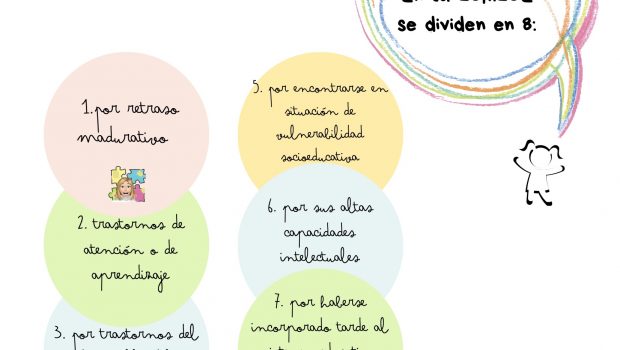 se dividen en 8:
1. por retraso
madurativo
2. trastornos de
atención o de
aprendizaje
3. por trastornos del
5. por encontrarse en
situación de
vulnerabilidad
socioeducativa
6. por sus altas
capacidades
intelectuales
7. por haberse
incorporado tarde al